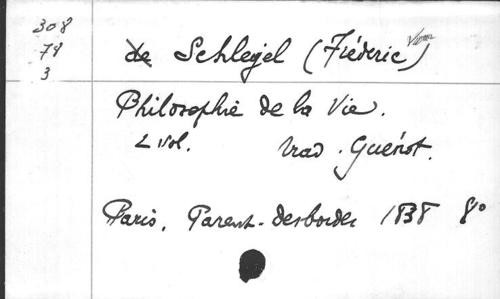 308
78
3
de Schlegel (Fréderic von)
Philosophie de la Vie.
2 vol. trad. Guénot.
Paris, Parent-Desbordes 1838 8°